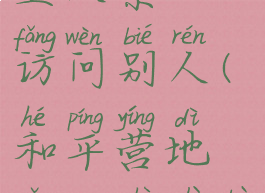 fǎng wèn bié rén
访问别人(
hé píng yíng dì
和平营地